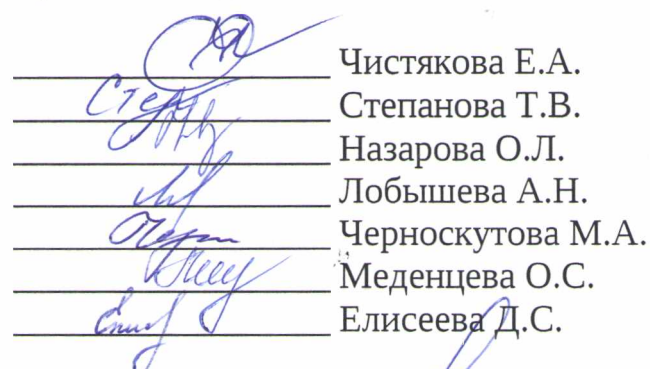 Чистякова Е.А.
Степанова Т.В.
Назарова О.Л.
Лобышева А.Н.
Черноскутова М.А.
Меденцева О.С.
Елисеева Д.С.